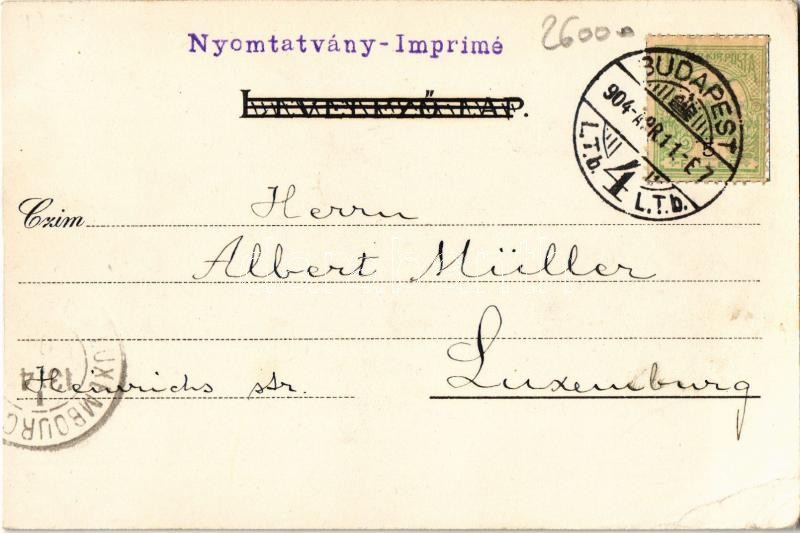 Nyomtatvány-Imprimé
26000
LEVELEZŐ-LAP.
BUDAPEST
904-APR.11.-E7
L.T.b. 4 L.T.b.
Czim
Herrn
Albert Müller
Heinrichs str.
Luxemburg
LUXEMBOURG
13.4